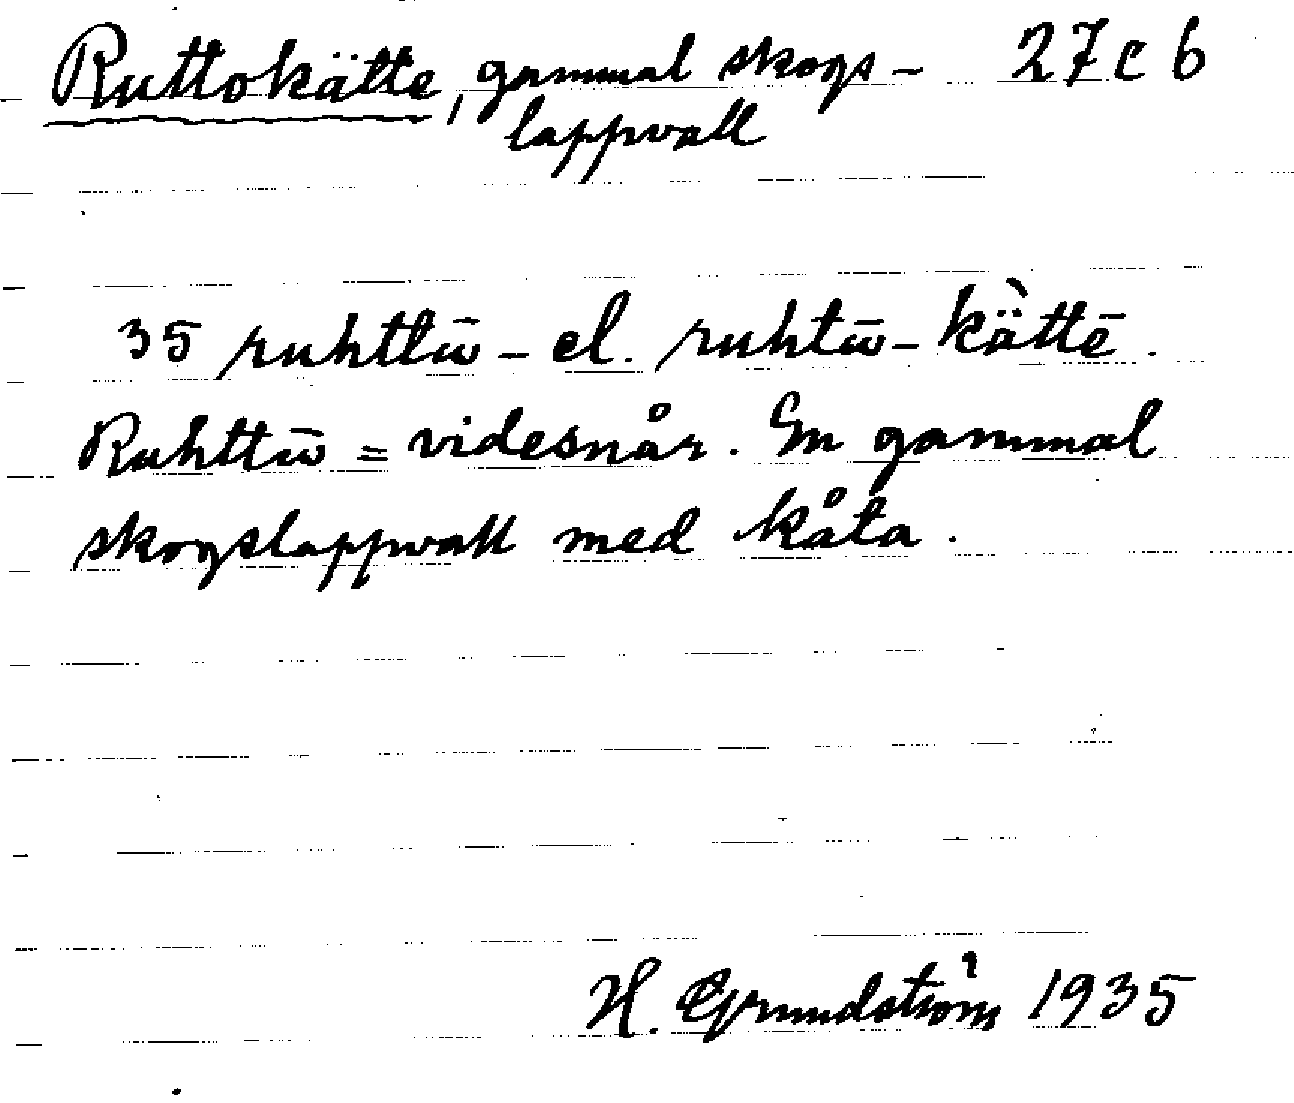 Ruttokätte, gammal skogs- 27 c 6
lappvall
35 ruhttū- el. ruhtū-kä̀ttē.
Ruhttū = videsnår. En gammal
skogslappvall med kåta.
H. Grundström 1935